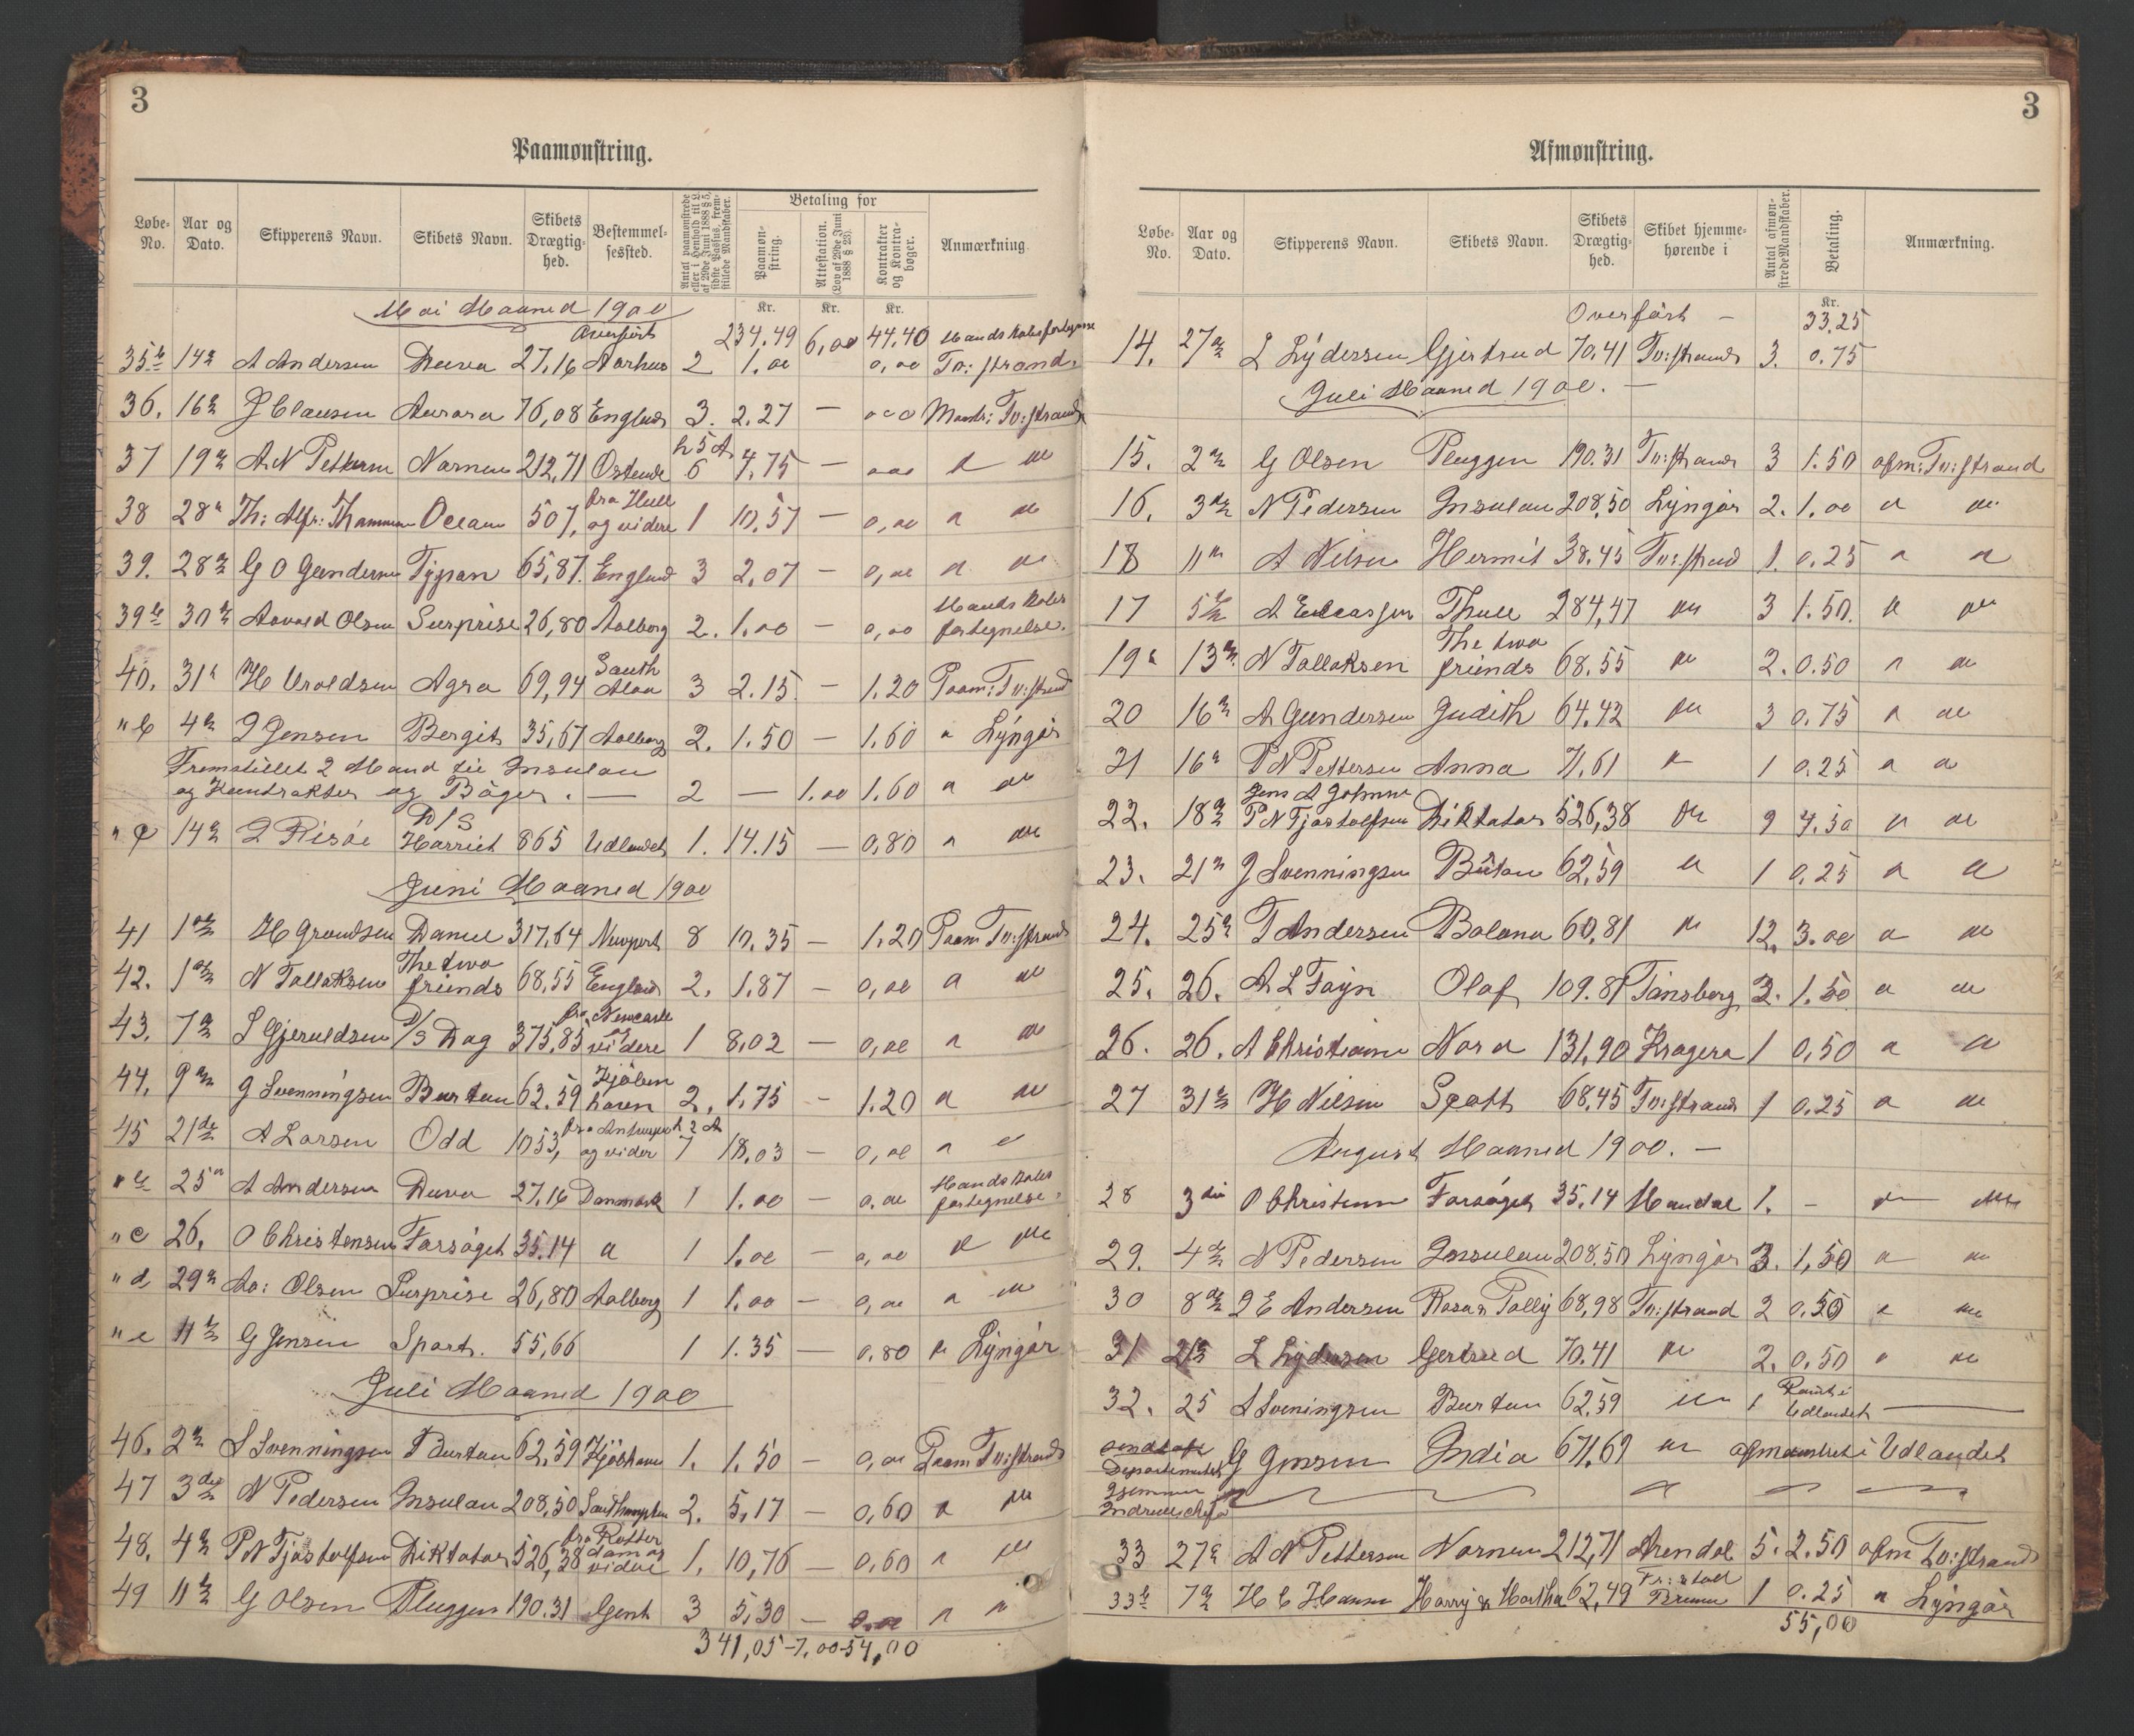 3
Paamonstring.
Løbe-No. Aar og Dato. Skipperens Navn. Skibets Navn. Skibets Drægtighed. Bestemmelsessted. Antal paamonstrede eller i Henhold til L. af 29de Juni 1888 § 5, sidste Passus, fremstillede Mandskaber. Betaling for Paamonstring. Attestation. (Lov af 29de Juni 1888 § 23). Kontrakter og Kontrabøger. Anmærkning.
Kr. Kr. Kr.
Mai Maaned 1900
Overført 234.49 6,00 44,40 Mandskabsfortegnelse
35 b 14 A Andersen Duva 27,16 Aarhus 2 1.00 0,00 Tv:strand
36. 16 J Clausen Aurora 76,08 England 3. 2.27 — 000 Mønstr: Tv:strand
37 19 A N Pettersen Nornen 212,71 Ostende 6 4.75 —
38 28 Th: Alfr: Thommesen Ocean 507, fra Hull og videre 1 10,57 — 0,00
39. 28 G O Gundersen Tygran 65,87. England 3 2,07 — 0,00
39 b 30 Aavald Olsen Surprise 26,80 Aalborg 2. 1.00 — 0,00 Mandskabsfortegnelse.
40. 31 H Uroldsen Agra 69,94 South Aloa 3 2.15. — 1.20 Paam: Tv:strand
" b 4 J Jensen Bergit 35,67 Aalborg 2. 1.50 — 1.60 " Lyngør
Fremstillet 2 Mand til Insulan
og Kontrakter og Bøger. — 2 — 1.00 1.60
" c 14 J Risøe D/S Harriet 865 Udlandet 1. 14.15 — 0,80
Juni Maaned 1900
41 1 H Grundsen Daniel 317,64 Newport 8 10.35 — 1.20 Paam Tv:strand
42. 1 N Tallaksen The two friends 68,55 England 2. 1.87 — 0,00
43. 7 S Gjeruldsen D/S Dag 375,85 fra Newcastle og videre 1 8,02 — 0,00
44. 9 J Svenningsen Burtan 62.59 Kjøbenhavn 2. 1.75 — 1.20
45 21de A Larsen Odd 1053, fra Antwerpen og vider 7 18,03 — 0,00
" b 25 A Andersen Duva 27,16 Danmark 1 1.00 — 0.00 Mandskabsfortegnelse.
" c 26. O Christensen Forsøget 35.14 " 1 1.00 — 0,00
" d 29 Aa: Olsen Surprise 26,80 Aalborg 1 1.00 — 0,00
" e 11 G Jensen Sport. 55,66 1 1.35 — 0.80 " Lyngør
Juli Maaned 1900
46. 2 S Svenningsen Burtan 62,59 Kjøbhavn 1. 1.50 — 0,00 Paam Tv:strand
47 3de N Pedersen Insulan 208,50 Southampton 2. 5,17 — 0,60
48. 4 P N Fjøstolfsen Diktator 526,38 fra Rotterdam og videre 1. 10,76 — 0,60
49 11 G Olsen Pluggen 190.31 Gent 3 5,30 — 0.00
341,05 - 7.00 - 54,00
3
Afmonstring.
Løbe-No. Aar og Dato. Skipperens Navn. Skibets Navn. Skibets Drægtighed. Skibet hjemmehørende i Antal afmonstrede Mandskaber. Betaling. Anmærkning.
Kr.
Overført — 33,25
14. 27 L Lydersen Gjertrud 70,41 Tv:strand 3. 0.75
Juli Maaned 1900. —
15. 2 G Olsen Pluggen 190.31 Tv:strand 3 1.50 afm: Tv:strand
16. 3 N Pedersen Insulan 208,50 Lyngør 2. 1.00
18 11 A Nilsen Hermit 38.45 Tv:strand 1. 0.25
17 5 A Thule 284,47 " 3 1.50.
19 13 N Tallaksen The two friends 68.55 " 2. 0.50
20 16 A Gundersen Judith 64.42 " 3 0.75
21 16 P N Pettersen Anna 71.61 " 1 0.25
22. 18 Jens A Johnsen P N Fjøstolfsen Diktator 526,38 " 9 4.50
23. 21 J Svenningsen Burtan 62,59 " 1 0,25
24. 25 T Andersen Balana 60,81 " 12. 3.00
25. 26. A L Føyn Olaf 109.81 Tønsberg 3. 1.50
26. 26. A Christiansen Nora 131,90 Kragerø 1 0,50
27 31 H Nilsen Spott 68,45 Tv:strand 1 0.25
August Maaned 1900. —
28 3die O Christensen Forsøget 35.14 Mandal 1. —
29. 4 N Pedersen Insulan 208.50 Lyngør 3. 1,50
30 8 J E Andersen Rosa & Polly 68,98 Tv:strand 2 0.50
31 21 L Lydersen Gertrud 70.41 " 2. 0.50
32. 25 S Sveningsen Burtan 62,59 " 1 Rømt i Udlandet —
Departementet G Jensen India 671,69 " afmønstret i Udlandet
33 27 A N Pettersen Nornen 212,71 Arendal 5. 2.50 afm Tv:strand
33 b 7 H C Hansen Harry & Martha 62,49 1 0.25 " Lyngør
55,00